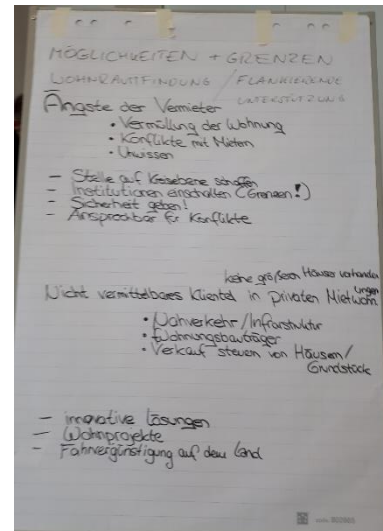 MÖGLICHKEITEN + GRENZEN
WOHNRAUMFINDUNG / FLANKIERENDE
UNTERSTÜTZUNG
Ängste der Vermieter
• Vermüllung der Wohnung
• Konflikte mit Mietern
• Unwissen
– Stelle auf Kreisebene schaffen
– Institutionen einschalten (Grenzen!)
– Sicherheit geben!
– Ansprechbar für Konflikte
keine größeren Häuser vorhanden
Nicht vermittelbares Klientel in privaten Mietwohnungen
• Nahverkehr/Infrastruktur
• Wohnungsbauträger
• Verkauf steuern von Häusern/
Grundstück
– innovative Lösungen
– Wohnprojekte
– Fahrvergünstigung auf dem Land